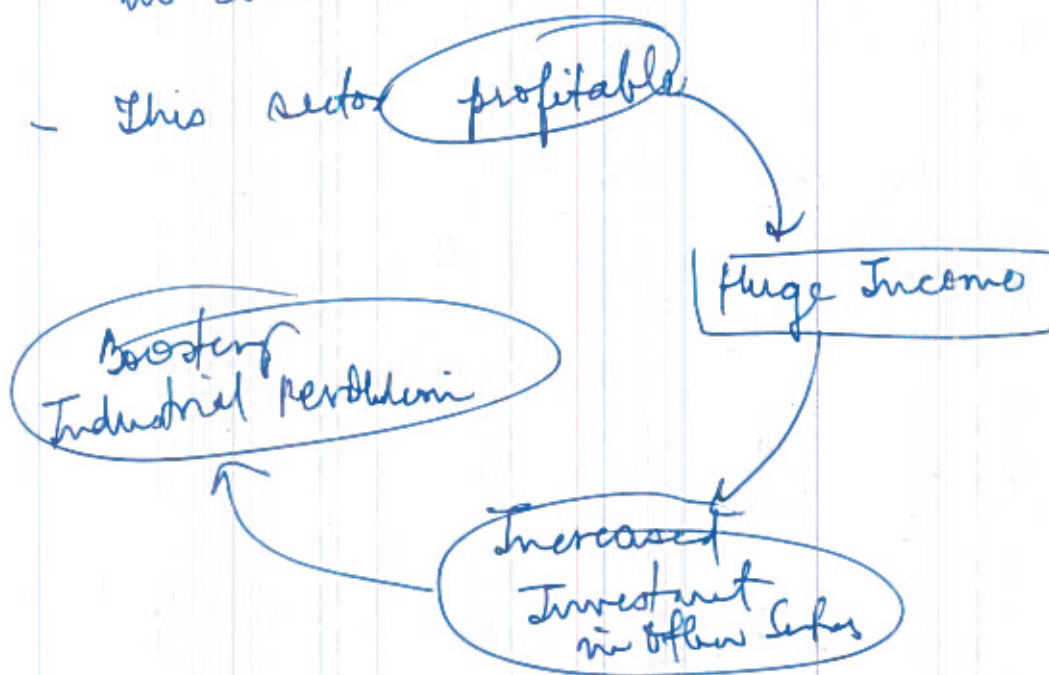 - This sector profitable
Huge Income
Increased
Investment
in Other Sectors
Boosting
Industrial Revolution